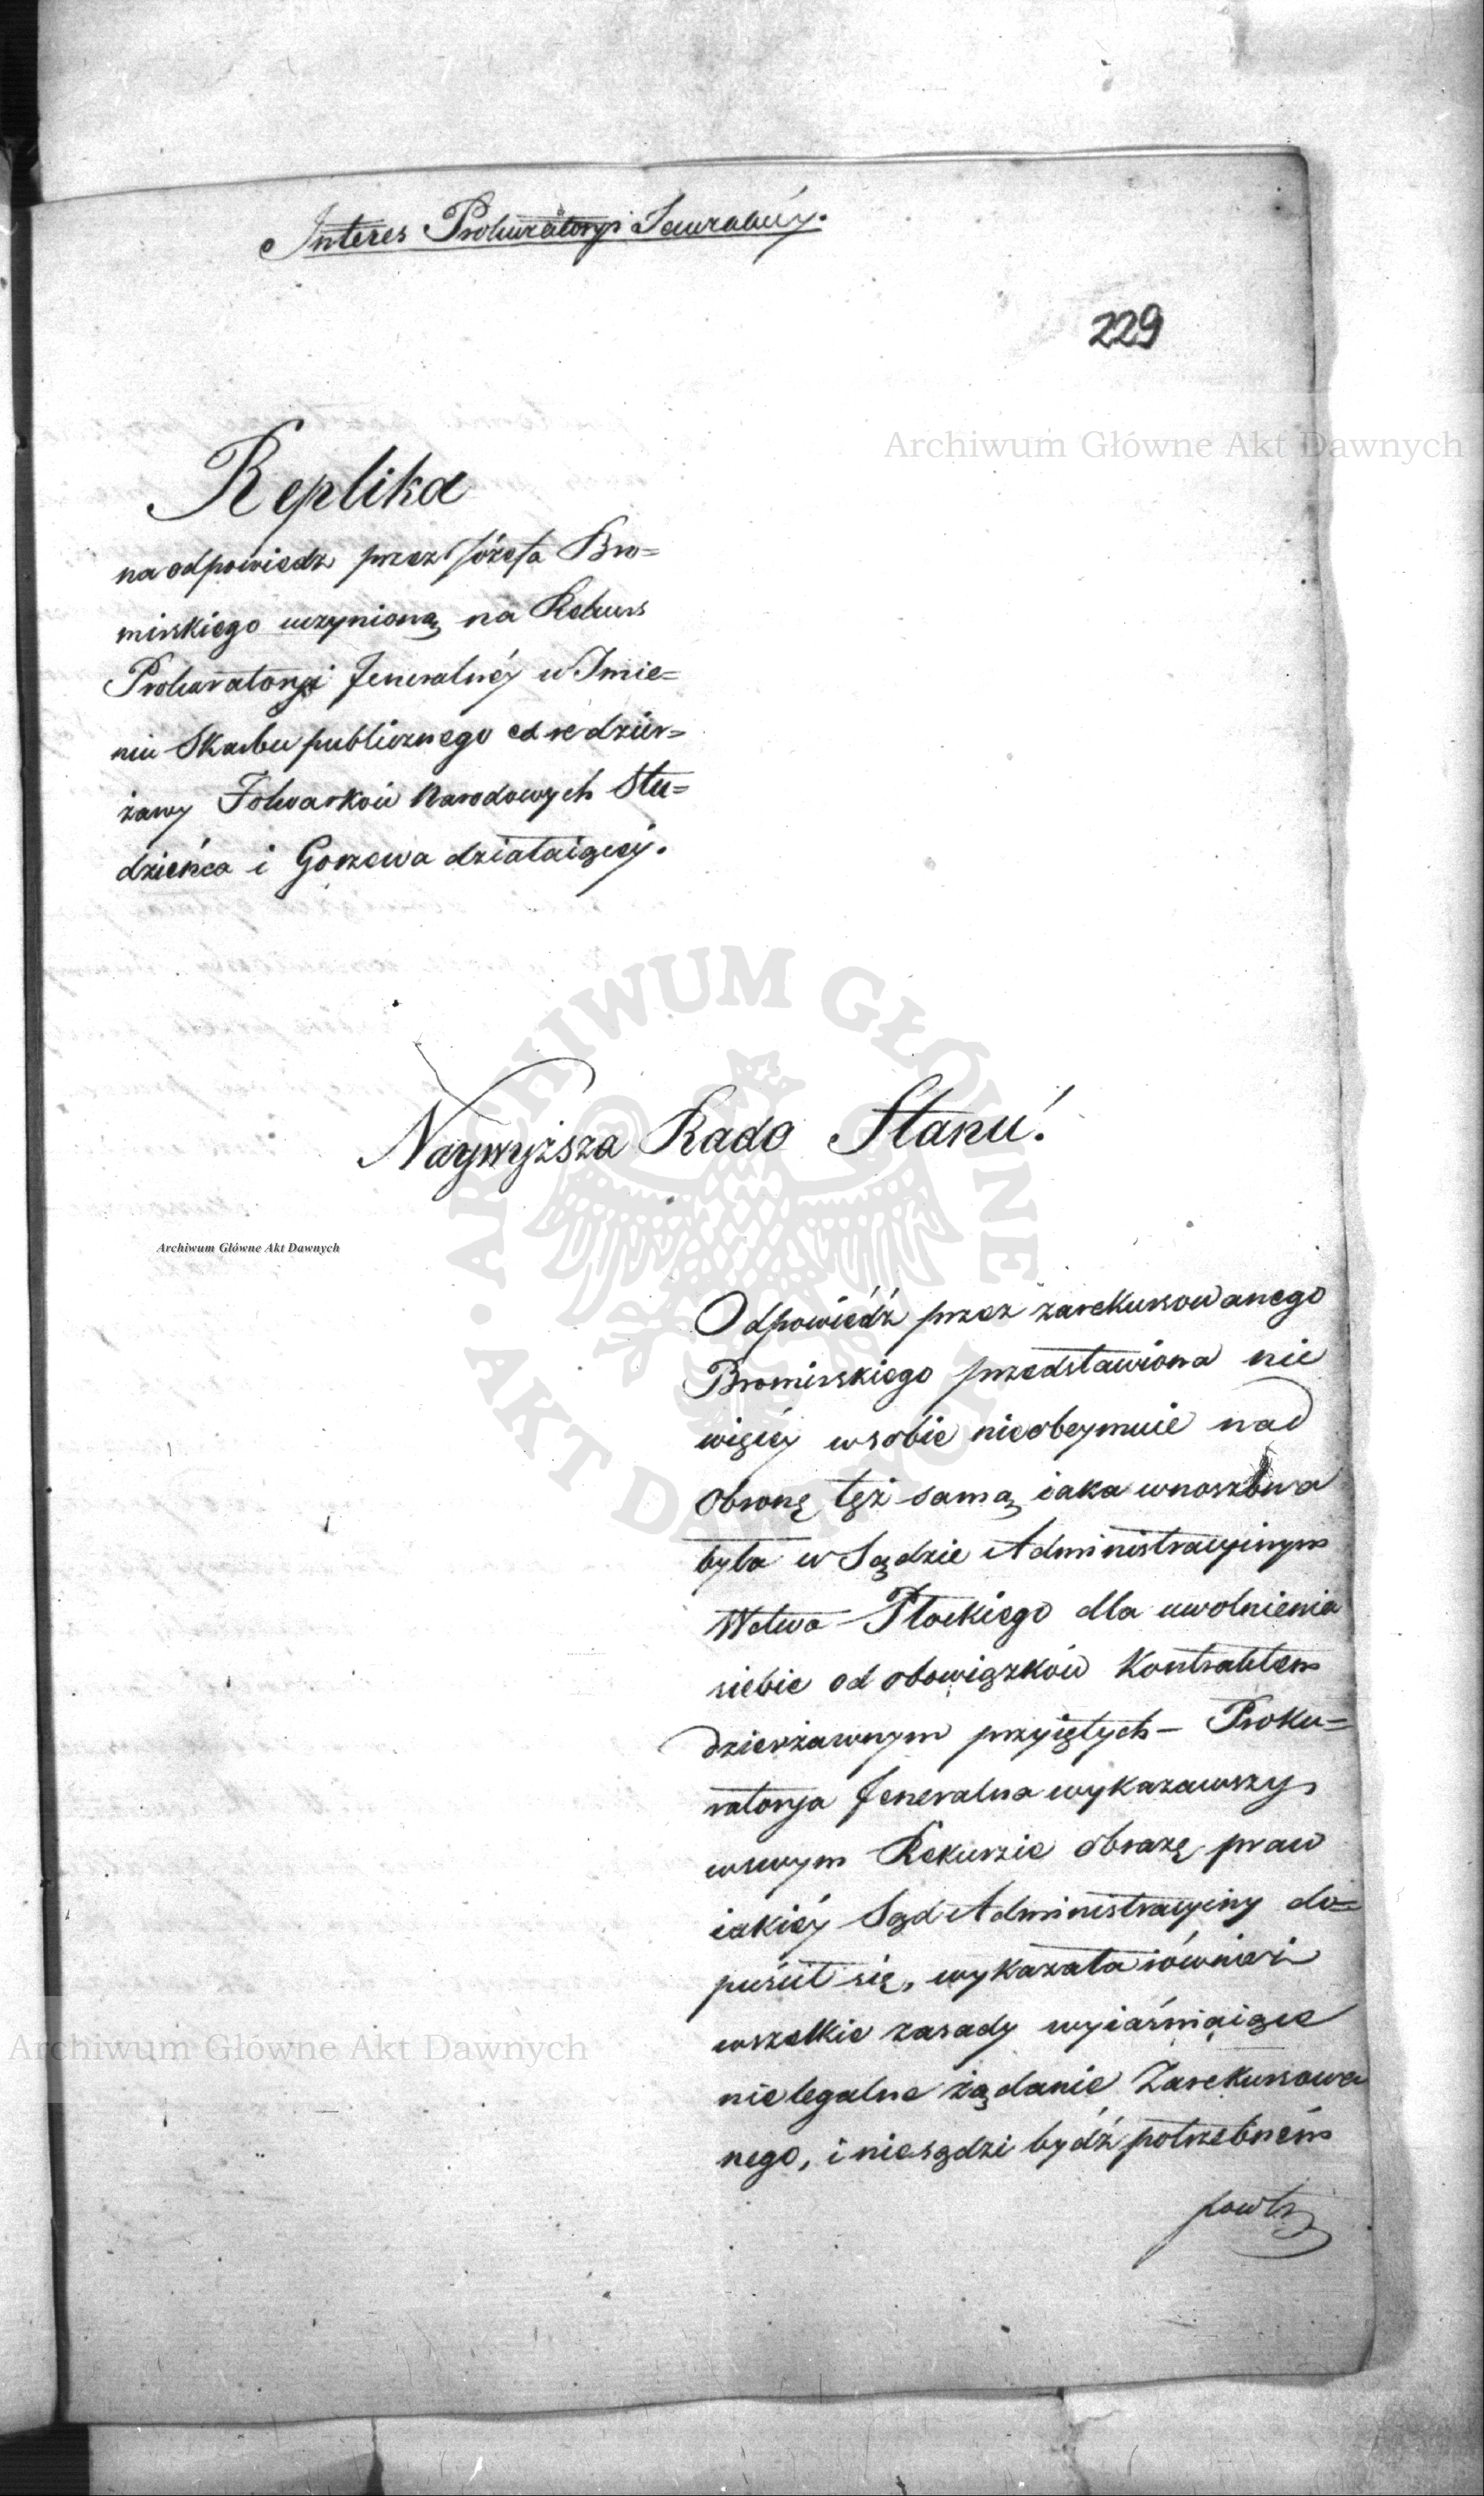 Interes Prokuratoryi Jeneralnéy.
229
Archiwum Główne Akt Dawnych
Replika
na odpowiedz przez Józefa Bro=
mirskiego uczynioną na Rekurs
Prokuratoryi Jeneralnéy w Imie=
niu Skarbu publicznego z dzier=
żawy Folwarków Narodowych Stu=
dzieńca i Gorzewa działaiącéy.
ARCHIWUM GŁÓWNE AKT DAWNYCH
Naywyższa Rado Stanu!
Archiwum Główne Akt Dawnych
Odpowiédź przez zarekursowanego
Bromirskiego przedstawiona nic
więcéy w sobie nieobeymuie nad
obronę tęż samą iaka wnoszona
była w Sądzie Administracyinym
Wdwa Płockiego dla uwolnienia
siebie od obowiązków Kontraktem
dzierżawnym przyiętych – Proku=
ratorya Jeneralna wykazawszy
w swym Rekurzie obrazę praw
iakiéy Sąd Administracyiny do=
puścił się, wykazała również
wszelkie zasady wyiaśniaiące
nielegalne żądanie Zarekursowa
nego, i niesądzi bydź potrzebném
Archiwum Główne Akt Dawnych
powtz